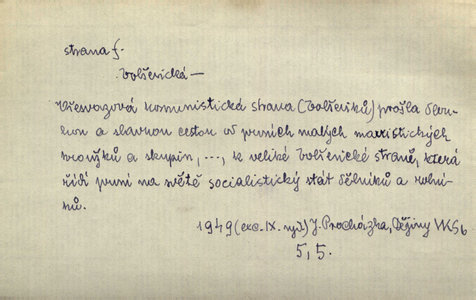 strana f.
bolševická —
Všesvazová komunistická strana (bolševiků) prošla dlou-
hou a slavnou cestou od prvních malých marxistických
kroužků a skupin, ..., k veliké bolševické straně, která
řídí první na světě socialistický stát dělníků a rolní-
ků.
1949 (exc. IX. vyd.) J. Procházka, Dějiny VKSb
5,5.